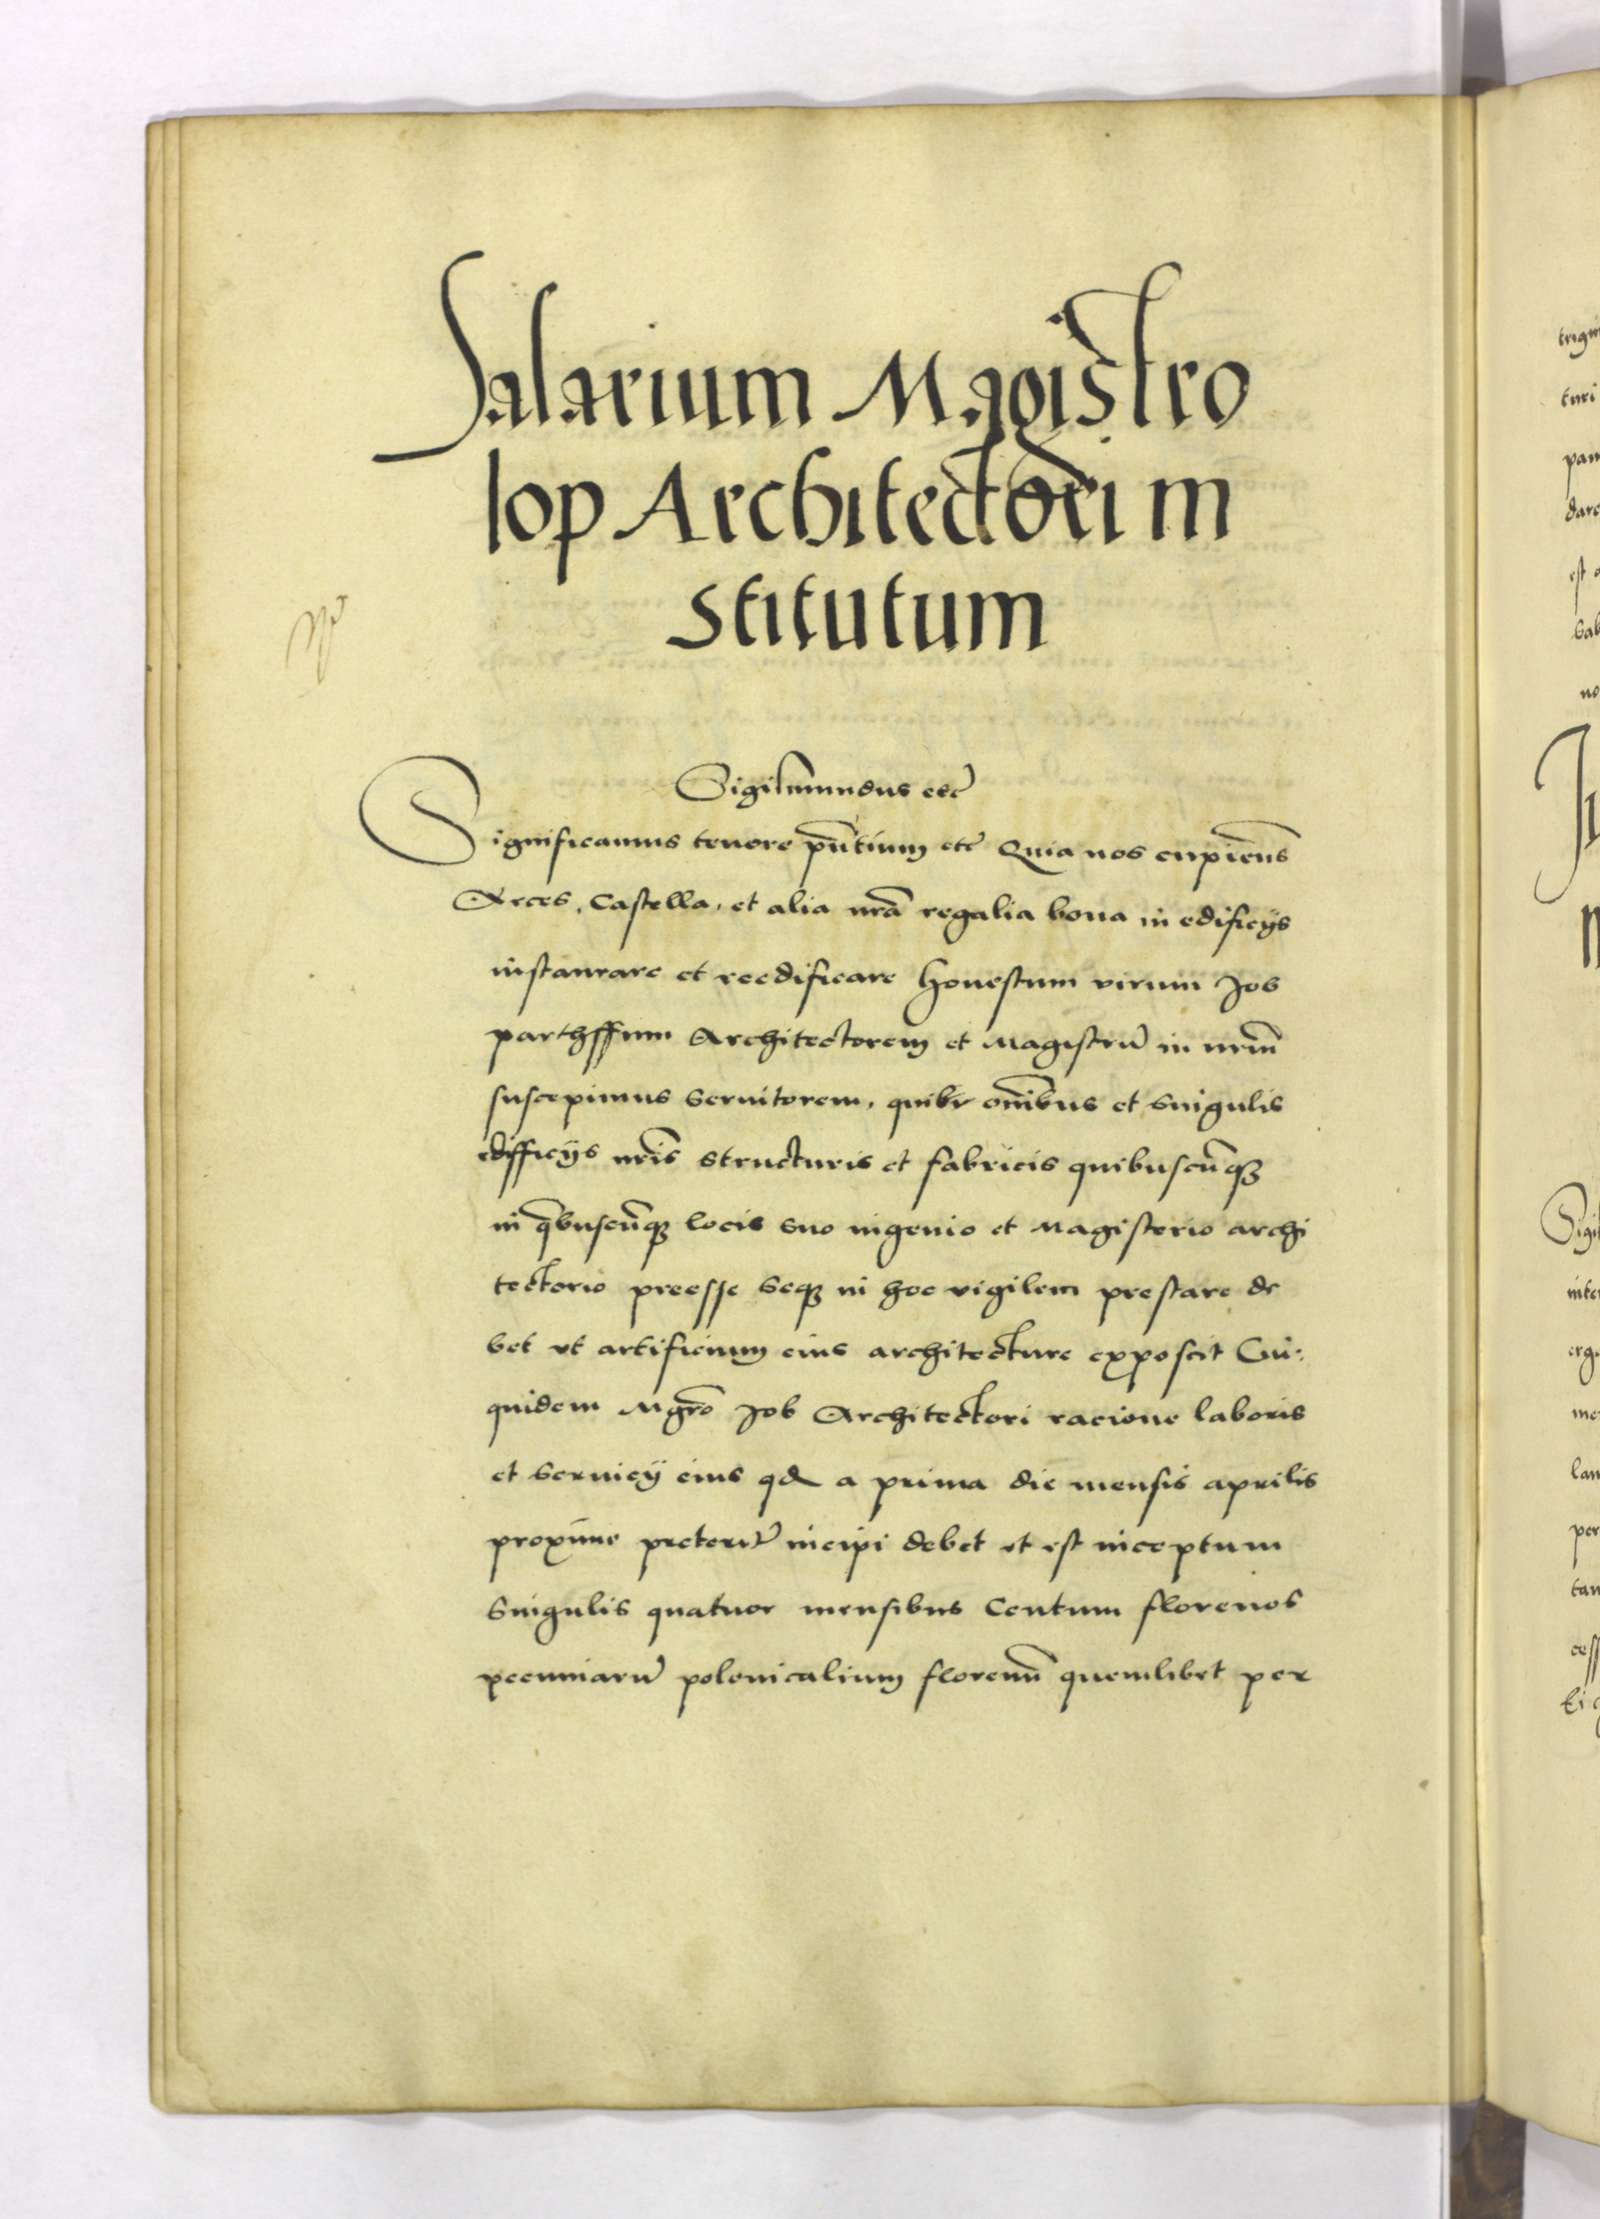 Salarium Magistro
Iop Architectori in
stitutum
Sigismundus etc̃
Significamus tenore pn̄tium etc̃ Quia nos cupiens
Arces, Castella, et alia nrã regalia bona in edificijs
instaurare et reedificare honestum virum Job
Architectorem et Magistrũ in nrm̃
suscepimus Servitorem, quibr omībus et singulis
edifficijs nrĩs structuris et fabricis quibuscũqȝ
in qbuscũqȝ locis suo ingenio et Magisterio archi
tectorio preesse seqȝ in hoc vigilem prestare de
bet ut artificium eius architecture exposcit Cui:
quidem Mgrõ Job Architectori racione laboris
et servicij eius qd a prima die mensis aprilis
proxime preteritj incipi debet et est inceptum
Singulis quatuor mensibus Centum florenos
pecuniarũ polonicalium florenũ quemlibet per
trigin
turi
pam
dare
est
hab
no
Sigi
inte
erg
me
lan
per
tan
cess